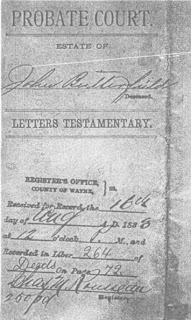 PROBATE COURT.
ESTATE OF
John Butterfield
Deceased.
LETTERS TESTAMENTARY.
REGISTER'S OFFICE,
COUNTY OF WAYNE, } ss.
Received for Record, the 16th
day of Aug A.D. 1883
at 12 o'clock P. M., and
Recorded in Liber 264 of
Deeds On Page 72
Register.